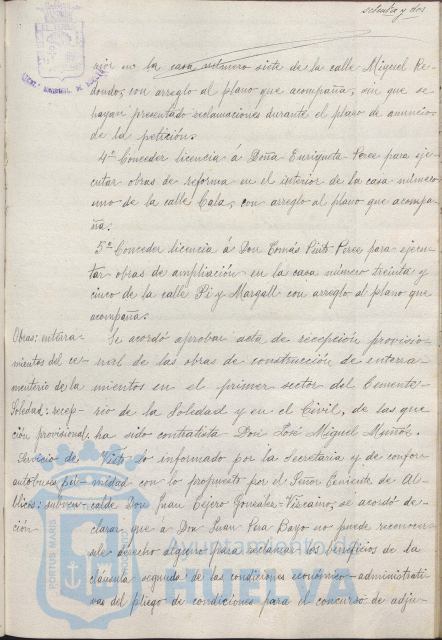 setenta y dos
ción en la casa número siete de la calle Miguel Re-
dondo, con arreglo al plano que acompaña, sin que se
hayan presentado reclamaciones durante el plazo de anuncio
de la petición.
4º Conceder licencia á Doña Enriqueta Perez para eje-
cutar obras de reforma en el interior de la casa número
uno de la calle Cala, con arreglo al plano que acompa-
ña.
5º Conceder licencia á Don Tomás Pinto Perez para ejecu-
tar obras de ampliación en la casa número treinta y
cinco de la calle Pi y Margall con arreglo al plano que
acompaña.
Obras: enterra-
mientos del ce-
menterio de la
Soledad: recep-
ción provisional.
Se acordó aprobar acta de recepción provisio-
nal de las obras de construcción de enterra-
mientos en el primer sector del Cemente-
rio de la Soledad y en el Civil, de las que
ha sido contratista Don José Miguel Muñoz.
Servicio de
autobuses pú-
blicos: subven-
ción
Visto lo informado por la Secretaria y de confor-
midad con lo propuesto por el Señor Teniente de Al-
calde Don Juan Tejero Gonzalez-Vizcaino, se acordó de-
clarar que a Don Juan Pera Bayo no puede reconocer-
sele derecho alguno para reclamar los beneficios de la
cláusula segunda de las condiciones económico-administrati-
vas del pliego de condiciones para el concurso de adju-
Ayuntamiento de
HUELVA
PORTUS MARIS